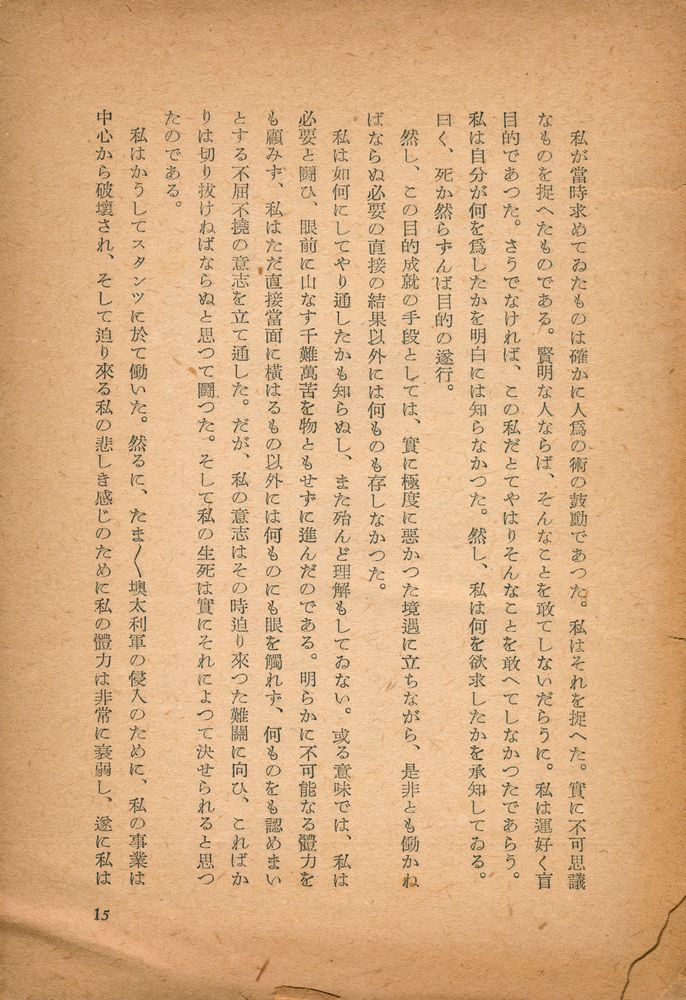 私が當時求めてゐたものは確かに人爲の術の鼓動であつた。私はそれを捉へた。實に不可思議
なものを捉へたものである。賢明な人ならば、そんなことを敢てしないだらうに。私は運好く盲
目的であつた。さうでなければ、この私だとてやはりそんなことを敢へてしなかつたであらう。
私は自分が何を爲したかを明白には知らなかつた。然し、私は何を欲求したかを承知してゐる。
曰く、死か然らずんば目的の遂行。
然し、この目的成就の手段としては、實に極度に惡かつた境遇に立ちながら、是非とも働かね
ばならぬ必要の直接の結果以外には何ものも存しなかつた。
私は如何にしてやり通したかも知らぬし、また殆んど理解もしてゐない。或る意味では、私は
必要と鬪ひ、眼前に山なす千難萬苦を物ともせずに進んだのである。明らかに不可能なる體力を
も顧みず、私はただ直接當面に橫はるもの以外には何ものにも眼を觸れず、何ものをも認めまい
とする不屈不撓の意志を立て通した。だが、私の意志はその時迫り來つた難關に向ひ、こればか
りは切り拔けねばならぬと思つて鬪つた。そして私の生死は實にそれによつて決せられると思つ
たのである。
私はかうしてスタンツに於て働いた。然るに、たま〱墺太利軍の侵入のために、私の事業は
中心から破壞され、そして迫り來る私の悲しき感じのために私の體力は非常に衰弱し、遂に私は
15